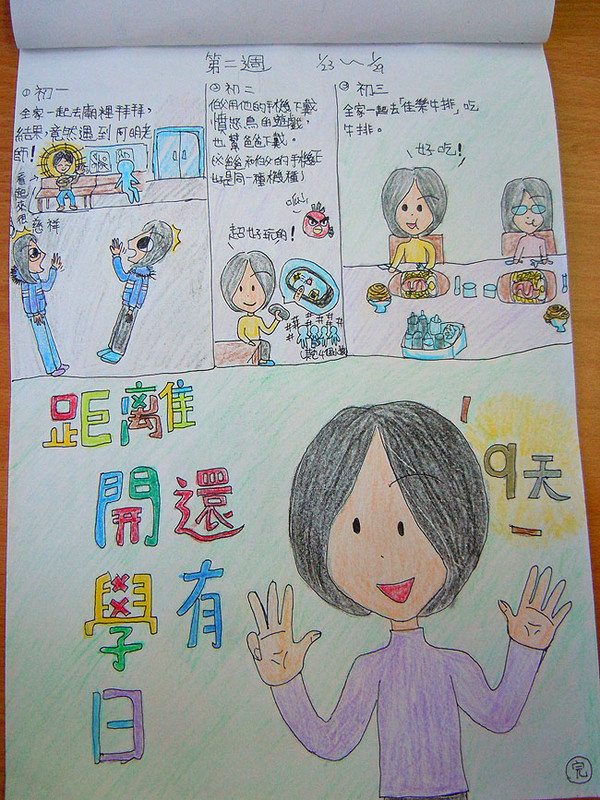 第二週 1/23~1/29
①初一
全家一起去廟裡拜拜,
結果,竟然遇到阿明老
師!
看起來很
慈祥
②初二
伯父用他的手機下載
憤怒鳥的遊戲,
也幫爸爸下載。
(爸爸和伯父的手機正
好是同一種機種)
呱!
超好玩的!
③初三
全家一起去「佳樂牛排」吃
牛排。
好吃!
距離
開學日
還有
9天
完